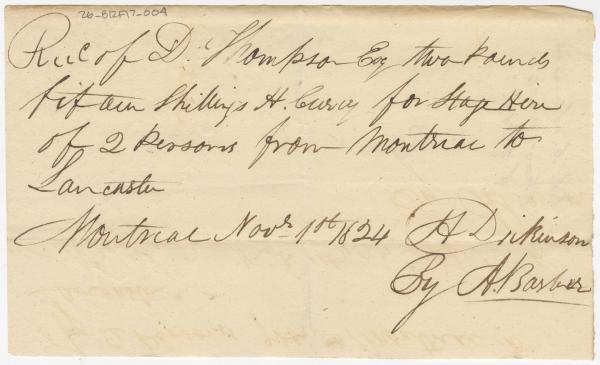 26-B12F17-004
Recd of D. Thompson Esq two Pounds
fifteen Shillings H. Curcy for Stage Hire
of 2 Persons from Montreal to
Lancaster
Montreal Novr 1st 1824 H Dickinson
By A. Barber